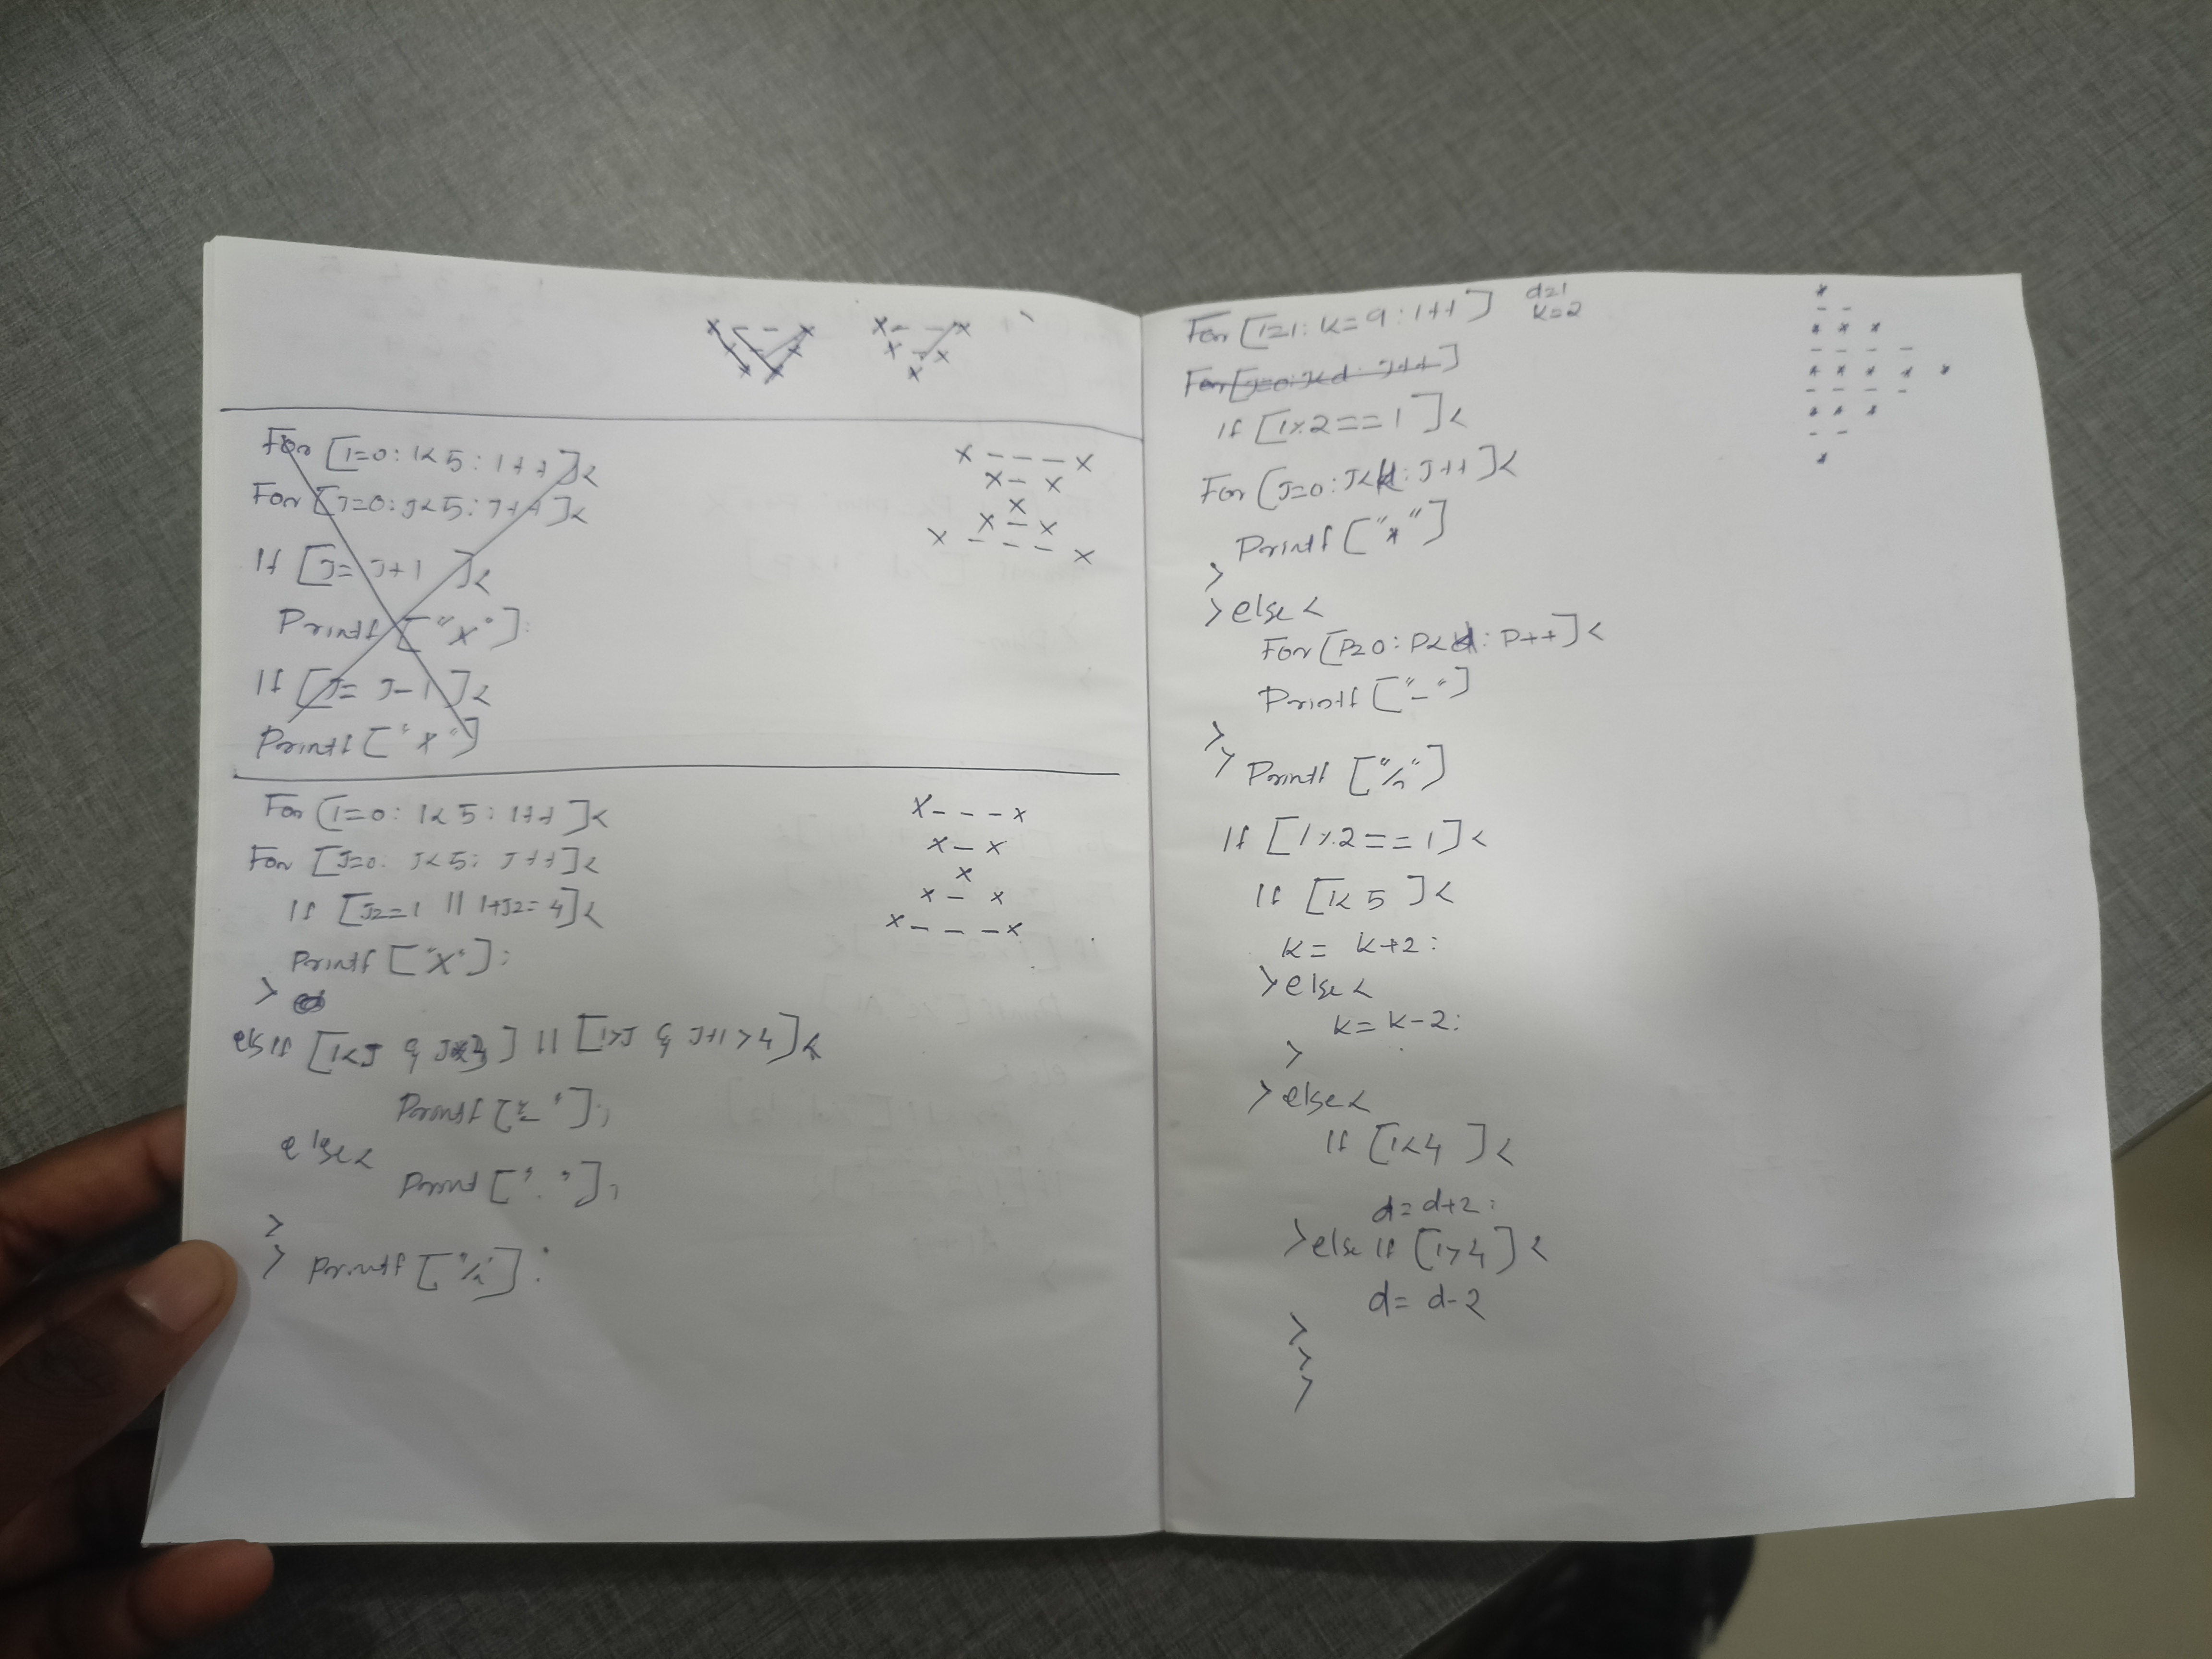 X - - X
X - - X
X - X
X
For [I=0: I<5: I++]<
For [J=0: J<5: J++]<
If [J= J+1 ]<
Printf ["X"]:
If [J= J-1 ]<
Printf ["X"]
X - - - X
X - X
X
X - X
X - - - X
For [I=0: I<5: I++]<
For [J=0: J<5: J++]<
If [J==I || I+J==4]<
Printf ["X"];
>
else if [I<J & ] || [I>J & J+I>4]<
Printf ["-"];
else<
Print [" "];
>
> Printf ["/n"]:
X - - - X
X - X
X
X - X
X - - - X
For [I=1: K=9: I++]
d=1
k=2
For [J=0: J<d: J++]
If [I%2==1]<
For [J=0: J<d: J++]<
Printf ["*"]
>
> else<
For [P=0: P<k: P++]<
Printf ["-"]
>
> Printf ["/n"]
If [I%2==1]<
If [I<5 ]<
k= k+2:
> else<
k= k-2:
>
> else<
If [I<4 ]<
d= d+2:
> else if [I>4]<
d= d-2
>
>
>
*
- -
* * *
- - - -
* * * * *
- - - -
* * *
- -
*